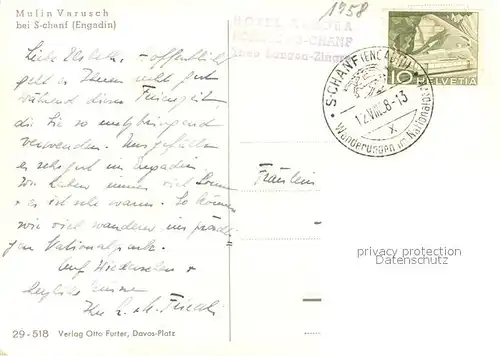 Mulin Varusch
bei S-chanf (Engadin)
1958
HOTEL AURORA
S-CHANF
10
HELVETIA
S-CHANF (ENGADIN)
12.VIII.58-13
X
Wanderungen im Nationalpark
Liebe Elsbeth, hoffentlich
geht es Ihnen recht gut
während dieser Ferienzeit
die Sie so
verwenden. Uns gefällt
es sehr gut im Engadin
Wir haben immer viel Sonne
+ es ist sehr warm. So können
wir viel wandern im prächti-
gen Nationalpark.
Auf Wiedersehen +
herzliche Grüsse
Ihr
Fräulein
privacy protection
Datenschutz
29-518 Verlag Otto Furter, Davos-Platz